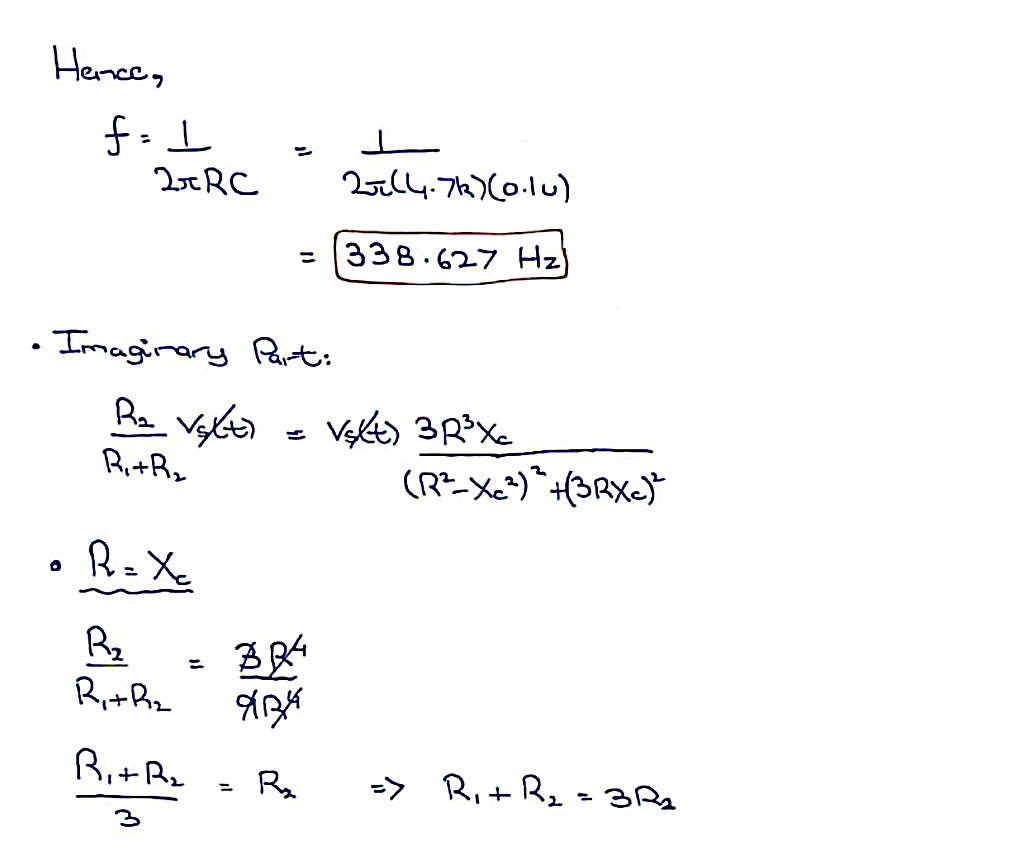 Hence,
f = 1/(2πRC) = 1/(2π(4.7k)(0.1u))
= 338.627 Hz
• Imaginary Part:
R₂/(R₁+R₂) Vs(t) = Vs(t) 3R³Xc/((R²-Xc²)²+(3RXc)²)
• R = Xc
R₂/(R₁+R₂) = 3R⁴/9R⁴
(R₁+R₂)/3 = R₂ => R₁ + R₂ = 3R₂